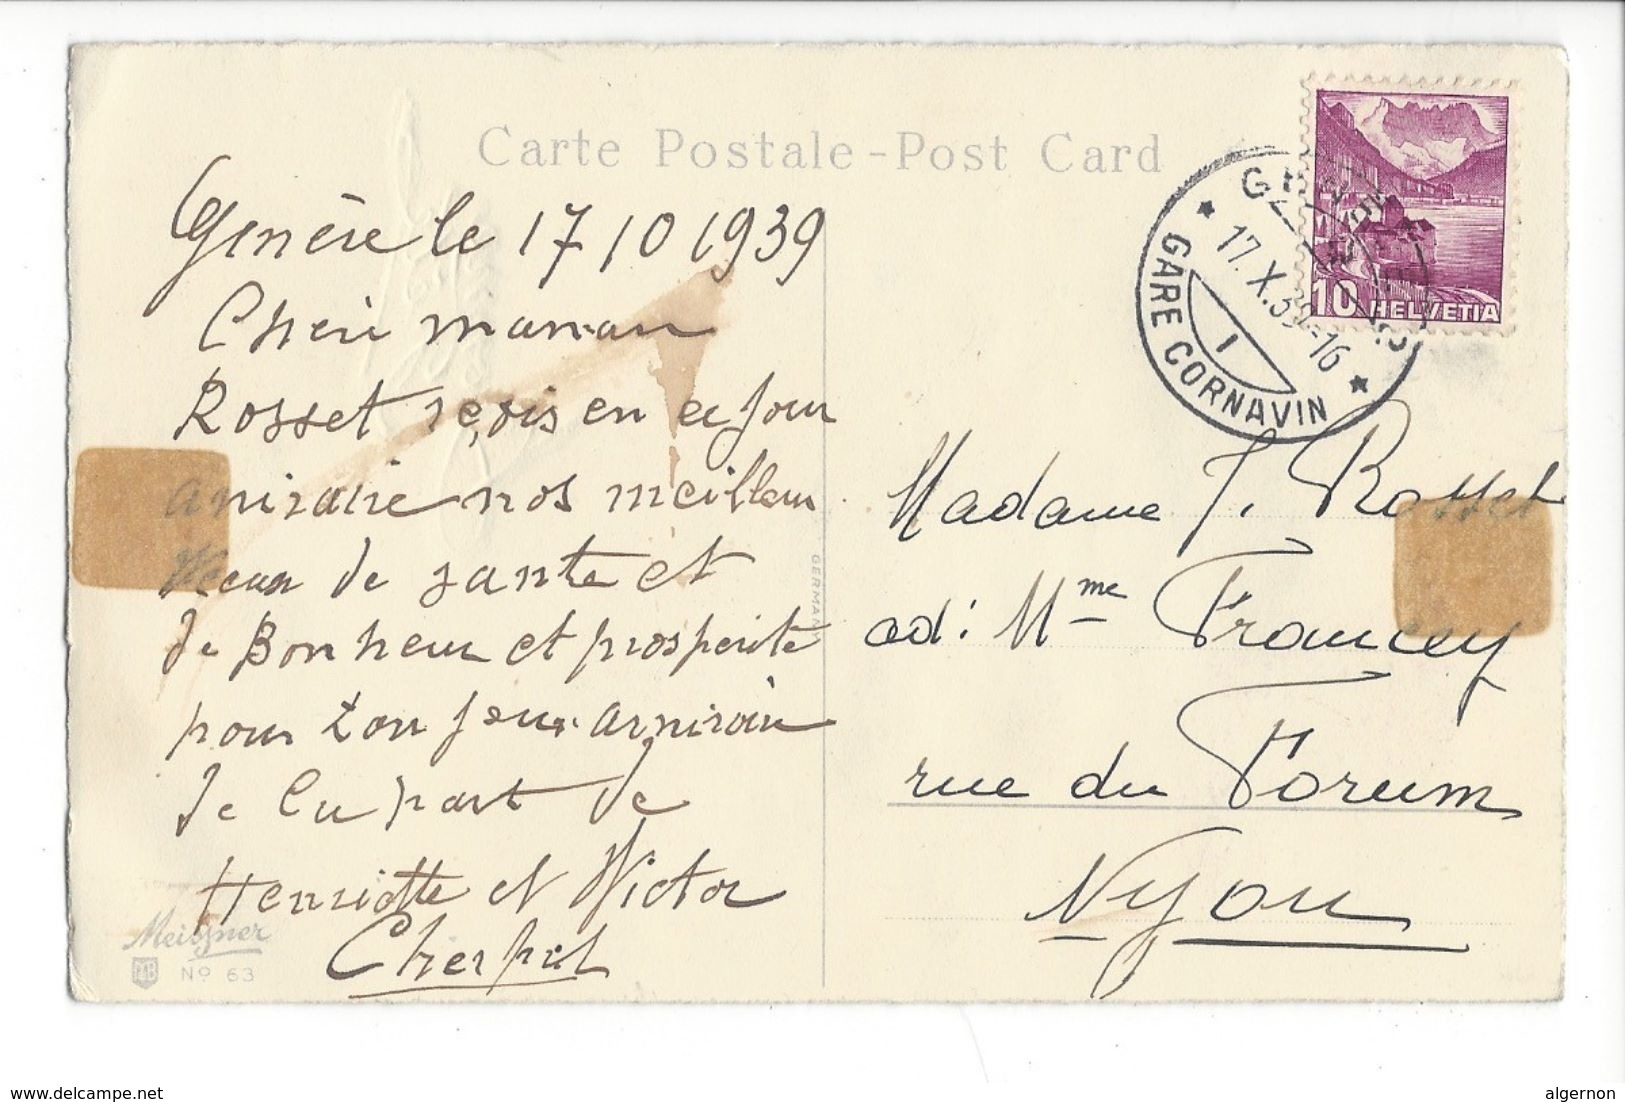 Carte Postale - Post Card
Genève le 17 10 1939
Cheri maman
Rosset reçois en ce jour
aniraire nos meilleur
Veaux de sante et
de Bonheur et prosperite
pour ton jeux arniraire
de la part de
Henriotte et Victor
Cherpit
Meissner
No 63
GERMANY
GENÈVE
17.X.39.-16
1
GARE CORNAVIN
10 HELVETIA
Madame J. Rosset
ad: Mme Francey
rue du Forum
Nyon
www.delcampe.net
algernon